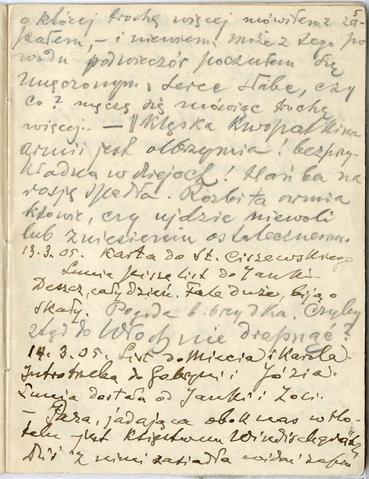 5
o której trochę więcej mówiłem z za-
pałem, – i niewiem, może z tego po
wodu podwieczór poczułem się
zmęczonym. Serce słabe, czy
co? męczę się mówiąc trochę
więcej. – || Klęska Kuropatkina
armii jest olbrzymia! bezprzy-
kładna w dziejach! Hańba na
rosję spadła. Rozbita armia
któż wie, czy ujdzie niewoli
lub zniesieniu ostatecznemu.
13.3.05. Karta do St. Ciszewskiego
Lunia pisze list do Janki.
Deszcz, cały dzień. Fale duże, biją o
skały. Pogoda b. brzydka. Czyby
stąd do Włoch nie drapnąć?
14.3.05. List do Miecia i Karola.
do Gabryni i Józia.
Lunia dostała od Janki i Zoci.
– Para, jadająca obok nas w Ho-
telu jest księstwem Windischgrätz
Dziś z nimi zasiadła